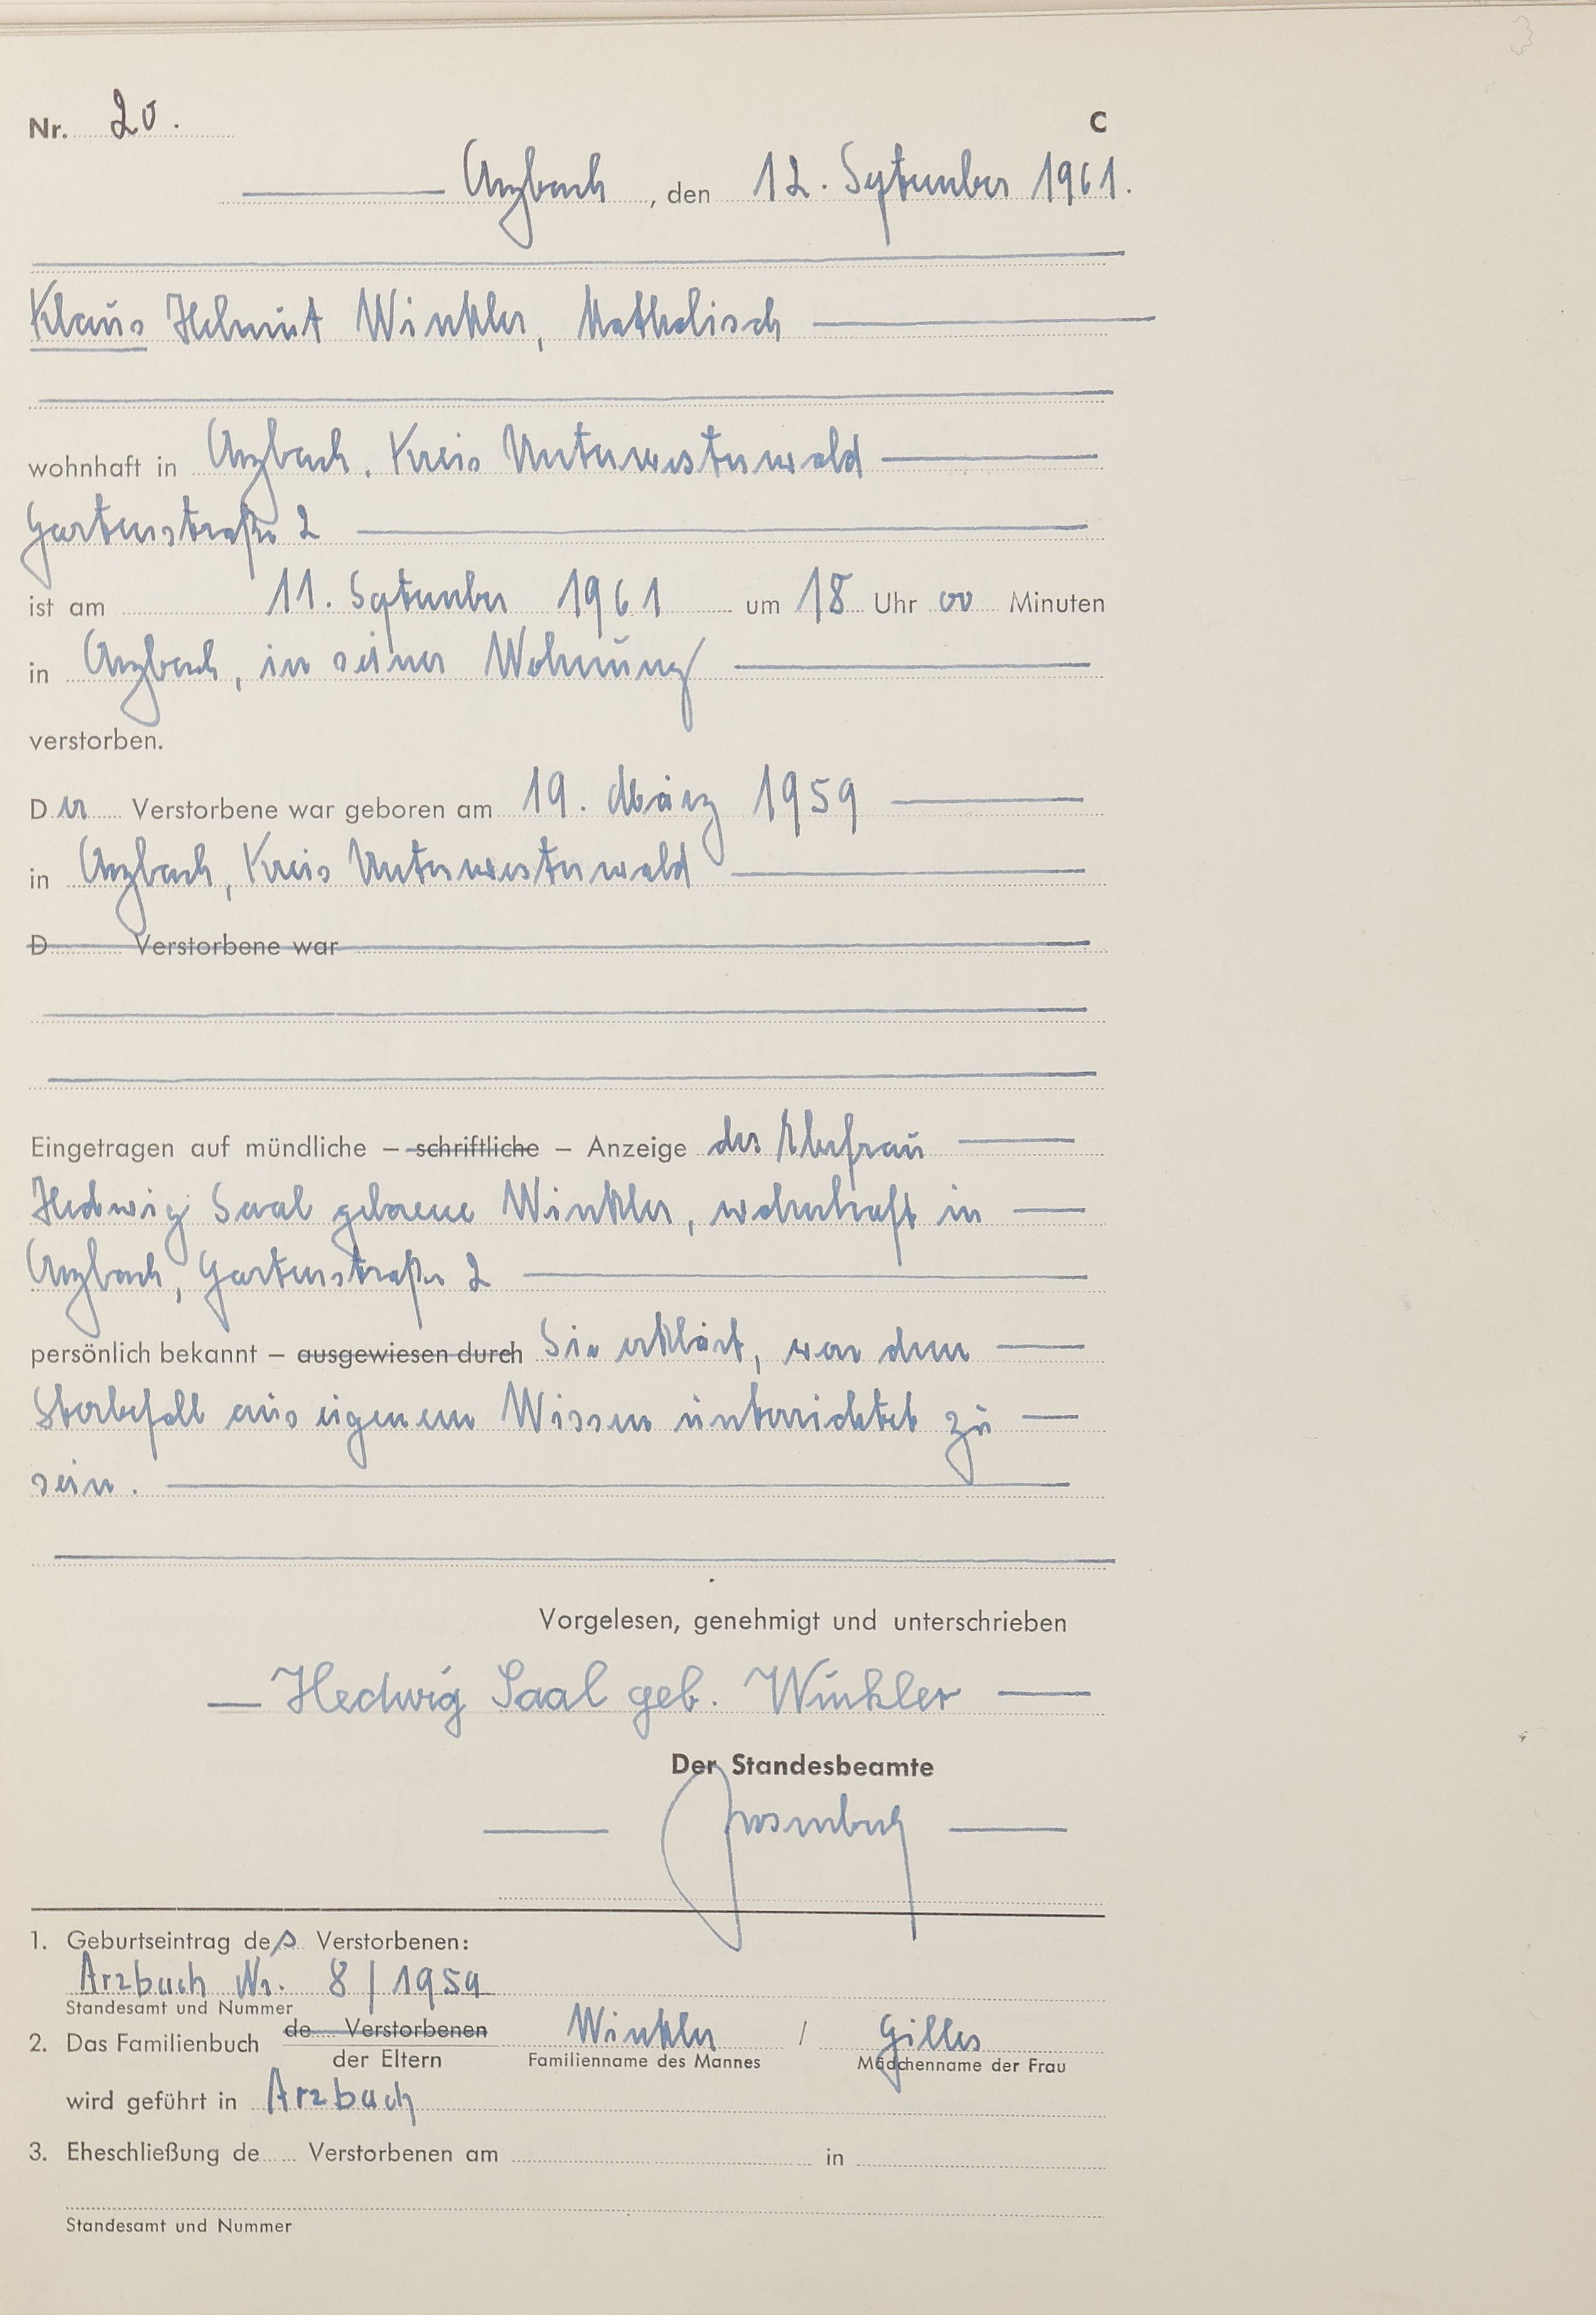 Nr. 20. C
Arzbach, den 12. September 1961.
Klaus Helmut Winkler, Katholisch
wohnhaft in Arzbach, Kreis Unterwesterwald
Gartenstraße 2
ist am 11. September 1961 um 18 Uhr 00 Minuten
in Arzbach, in seiner Wohnung
verstorben.
Der Verstorbene war geboren am 19. März 1959
in Arzbach, Kreis Unterwesterwald
D Verstorbene war
Eingetragen auf mündliche – schriftliche – Anzeige der Ehefrau
Hedwig Saal geborene Winkler, wohnhaft in
Arzbach, Gartenstraße 2
persönlich bekannt – ausgewiesen durch Sie erklärt, von dem
Sterbefall aus eigenem Wissen unterrichtet zu
sein.
Vorgelesen, genehmigt und unterschrieben
Hedwig Saal geb. Winkler
Der Standesbeamte
1. Geburtseintrag des Verstorbenen:
Arzbach Nr. 8/1959
Standesamt und Nummer
2. Das Familienbuch de Verstorbenen der Eltern Winkler / Gilles
Familienname des Mannes Mädchenname der Frau
wird geführt in Arzbach
3. Eheschließung de Verstorbenen am in
Standesamt und Nummer